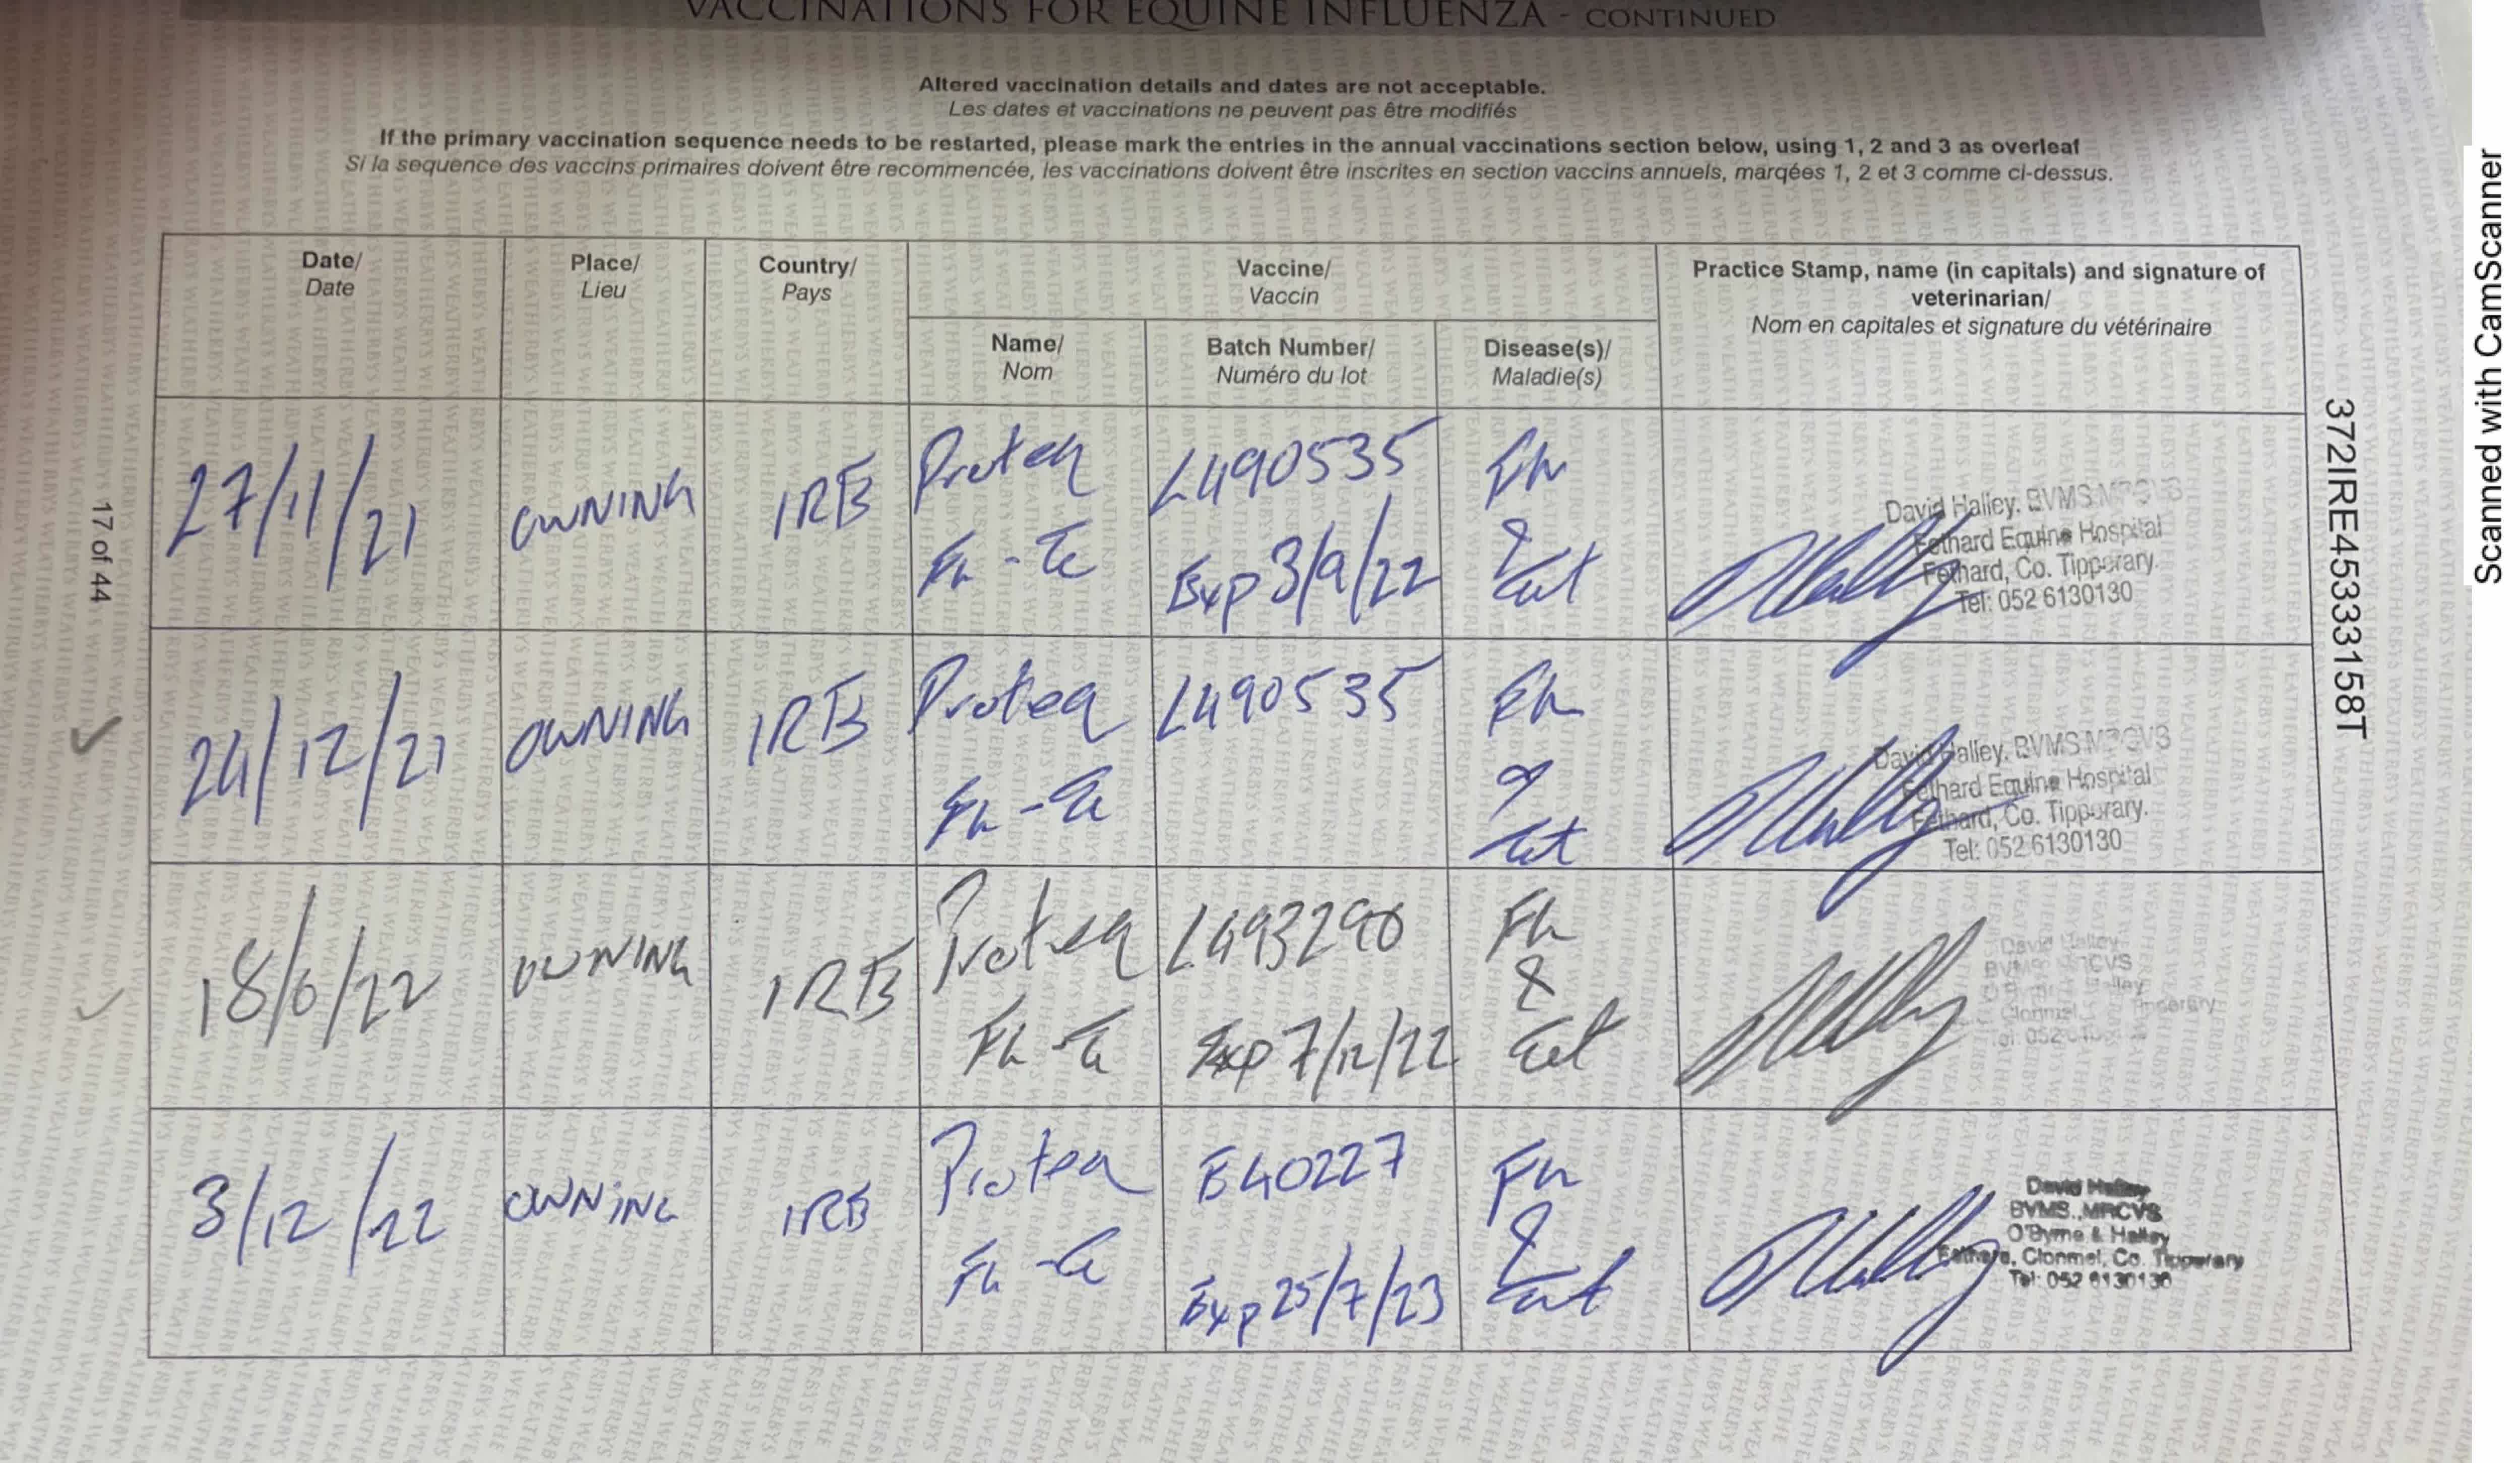 VACCINATIONS FOR EQUINE INFLUENZA - CONTINUED
Altered vaccination details and dates are not acceptable.
Les dates et vaccinations ne peuvent pas être modifiés
If the primary vaccination sequence needs to be restarted, please mark the entries in the annual vaccinations section below, using 1, 2 and 3 as overleaf
Si la sequence des vaccins primaires doivent être recommencée, les vaccinations doivent être inscrites en section vaccins annuels, marqées 1, 2 et 3 comme ci-dessus.
Date/
Date
Place/
Lieu
Country/
Pays
Vaccine/
Vaccin
Name/
Nom
Batch Number/
Numéro du lot
Disease(s)/
Maladie(s)
Practice Stamp, name (in capitals) and signature of
veterinarian/
Nom en capitales et signature du vétérinaire
27/11/21
OWNING
IRE
Proteq
Flu - Te
L490535
Exp 3/9/22
Flu
&
Tet
David Halley. BVMS MRCVS
Fethard Equine Hospital
Fethard, Co. Tipperary.
Tel: 052 6130130
24/12/21
OWNING
IRE
Proteq
Flu - Te
L490535
Flu
&
Tet
David Halley. BVMS MRCVS
Fethard Equine Hospital
Fethard, Co. Tipperary.
Tel: 052 6130130
18/6/22
OWNING
IRE
Proteq
Flu - Te
L493290
Exp 7/12/22
Flu
&
Tet
David Halley
BVMS MRCVS
Halley
Clonmel, Tipperary
Tel: 052
3/12/22
OWNING
IRE
Proteq
Flu - Te
E40227
Exp 25/7/23
Flu
&
Tet
David Halley
BVMS., MRCVS
O'Byrne & Halley
Fethard, Clonmel, Co. Tipperary
Tel: 052 6130130
17 of 44
372IRE45333158T
Scanned with CamScanner